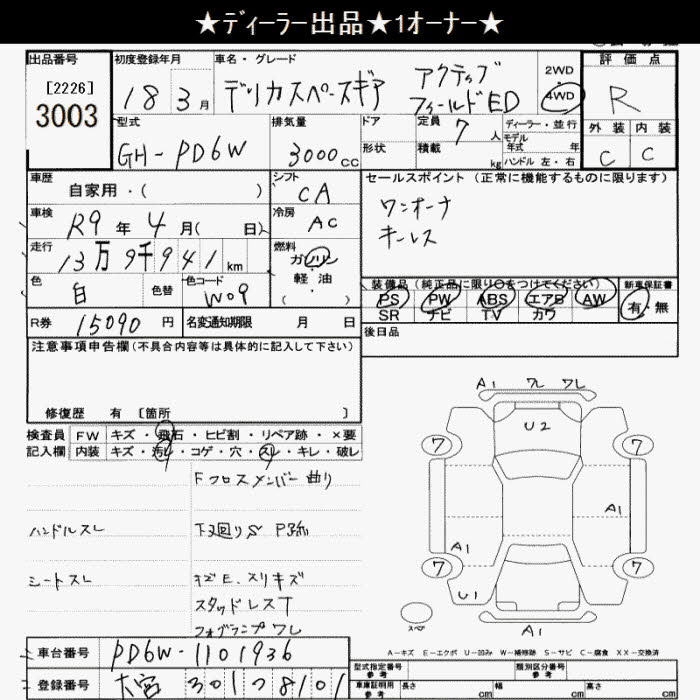 ★ディーラー出品★1オーナー★
出品番号 初度登録年月 車名・グレード 評価点
[2226]
3003
18 3月 デリカスペースギア アクティブ フィールドED 2WD 4WD R
型式 排気量 ドア 定員 7人 ディーラー・並行 外装 内装
GH-PD6W 3000cc 形状 積載 kg モデル年式 年 ハンドル 左・右 C C
車歴 自家用・( ) シフト CA セールスポイント (正常に機能するものに限ります)
車検 R9年4月( 日) 冷房 AC ワンオーナ
走行 13万9千941km 燃料 ガソリン・軽油・( ) キーレス
色 白 色替 色コード W09 装備品(純正品に限り○をつけてください) 新車保証書
PS PW ABS エアB AW 有・無
SR ナビ TV カワ
R券 15090円 名変通知期限 月 日 後日品
注意事項申告欄(不具合内容等は具体的に記入して下さい)
修復歴 有 [箇所 ]
検査員 FW キズ・飛石・ヒビ割・リペア跡・×要
記入欄 内装 キズ・汚レ・コゲ・穴・スレ・キレ・破レ
Fクロスメンバー曲り
ハンドルスレ 下廻りS P跡
シートスレ キズE、スリキズ
スタッドレスT
フォグランプワレ
A1 ワレ ワレ
U2
7 7
A1
A1
7 7
U1
スペア
A1
A-キズ E-エクボ U-凹み W-補修跡 S-サビ C-腐食 XX-交換済
車台番号 PD6W-1101936 型式指定番号 参考 類別区分番号 参考
登録番号 大宮 301つ8101 車庫証明用 参考 長さ cm 幅 cm 高さ cm